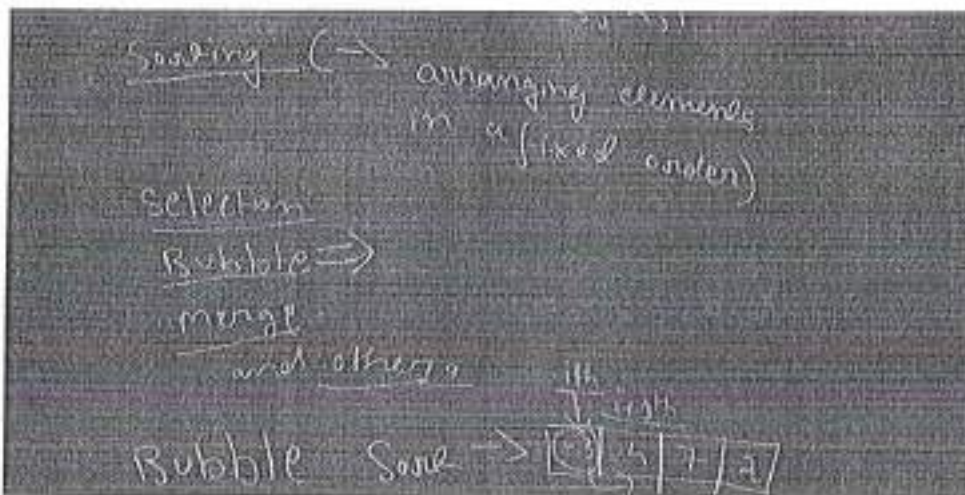 Sorting (→ arranging elements
in a fixed order)
Selection
Bubble ⇒
merge
and others
ith
Bubble Sort → 4 7 2